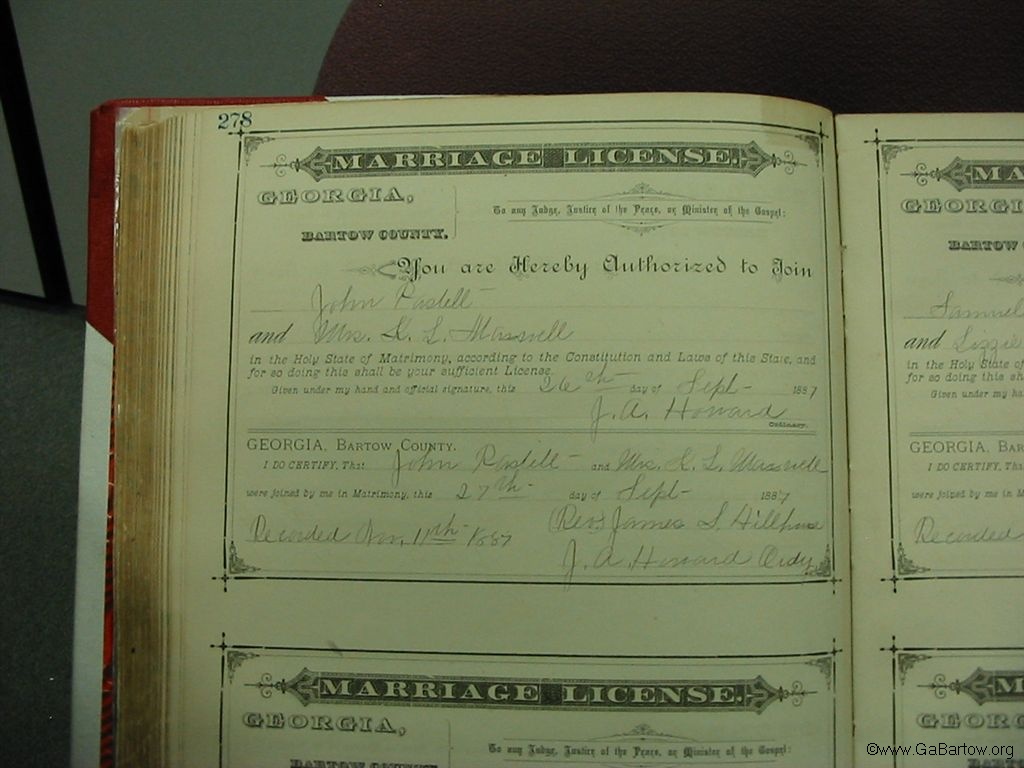 278
MARRIAGE LICENSE.
GEORGIA,
BARTOW COUNTY.
To any Judge, Justice of the Peace, or Minister of the Gospel:
You are Hereby Authorized to Join
John
and Mrs. L.
in the Holy State of Matrimony, according to the Constitution and Laws of this State, and
for so doing this shall be your sufficient License.
Given under my hand and official signature, this 26th day of Sept 1887
J. A. Howard
Ordinary.
GEORGIA, BARTOW COUNTY.
I DO CERTIFY, That John and Mrs. L.
were joined by me in Matrimony, this 27th day of Sept 1887
Recorded Nov. 11th 1887
(Rev) James S Hillhouse
J. A. Howard Ordy
MARRIAGE LICENSE.
GEORGIA,
BARTOW COUNTY.
To any Judge, Justice of the Peace, or Minister of the Gospel:
MA
GEORGI
BARTOW
Samuel
and Lizzie
in the Holy State of
for so doing this sh
Given under my ha
GEORGIA, BA
I DO CERTIFY, Tha
were joined by me in M
Recorded
M
GEORG
©www.GaBartow.org